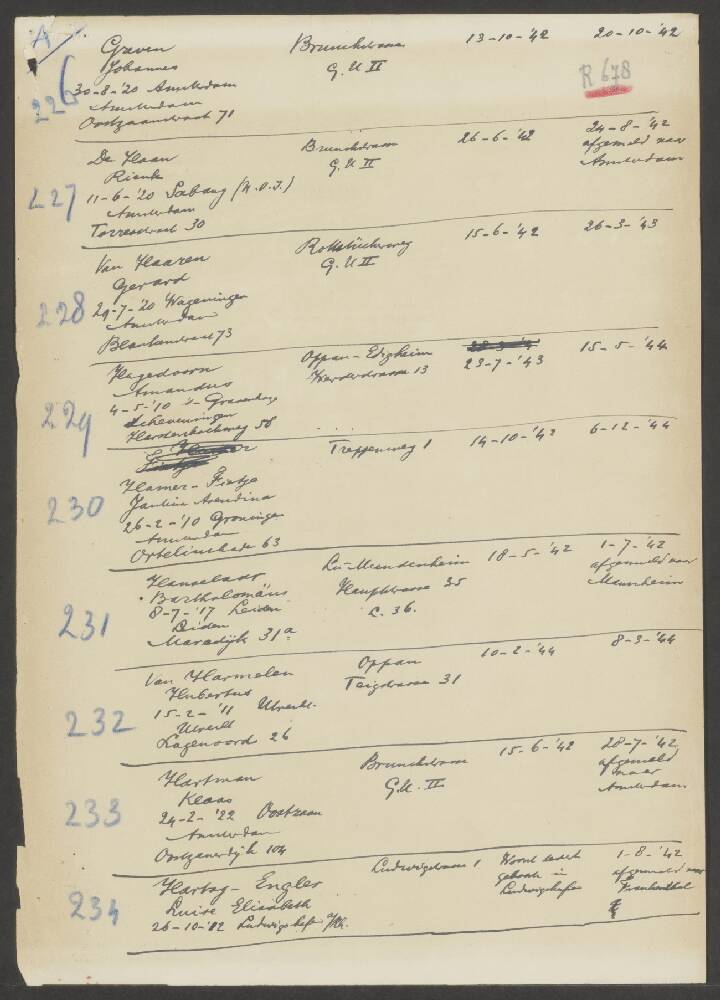 A
226
Graven Brunckstrasse 13-10-'42 20-10-'42
Johannes G.U II R 678
30-8-'20 Amsterdam
Amsterdam
Oostzaanstraat 71
227
De Haan Brunckstrasse 26-6-'42 24-8-'42
Rienk G.U II afgemeld naar
11-6-'20 Sabang (N.O.I.) Amsterdam
Amsterdam
30
228
Van Haaren 15-6-'42 26-3-'43
Gerard G.U II
29-7-'20 Wageningen
Amsterdam
73
229
Hagedoorn Oppau-Edigheim
Amandus 13 23-7-'43 15-5-'44
4-5-'10 's-Gravenhage
Scheveningen
Harderhoekweg
230
Treppenweg 1 14-10-'42 6-12-'44
Hamer-Fietje
Arendina
26-2-'10 Groningen
Amsterdam
63
231
Lu-Mundenheim 18-5-'42 1-7-'42
Bartholomäus Hauptstrasse 35 afgemeld naar
8-7-'17 Leiden L. 36. Mannheim
Leiden
Maredijk 31a
232
Van Harmelen Oppau 10-2-'44 8-3-'44
Hubertus 31
15-2-'11 Utrecht
Utrecht
Lagenoord 26
233
Hartman Brunckstrasse 15-6-'42 28-7-'42
Klaas G.U. II afgemeld
24-2-'22 Oostzaan naar
Amsterdam Amsterdam
Oostzanerdijk 104
234
Hartog-Engler Ludwigstrasse 1 1-8-'42
Luise Elisabeth geboekt in afgemeld naar
26-10-'12 Ludwigshafen Frankenthal